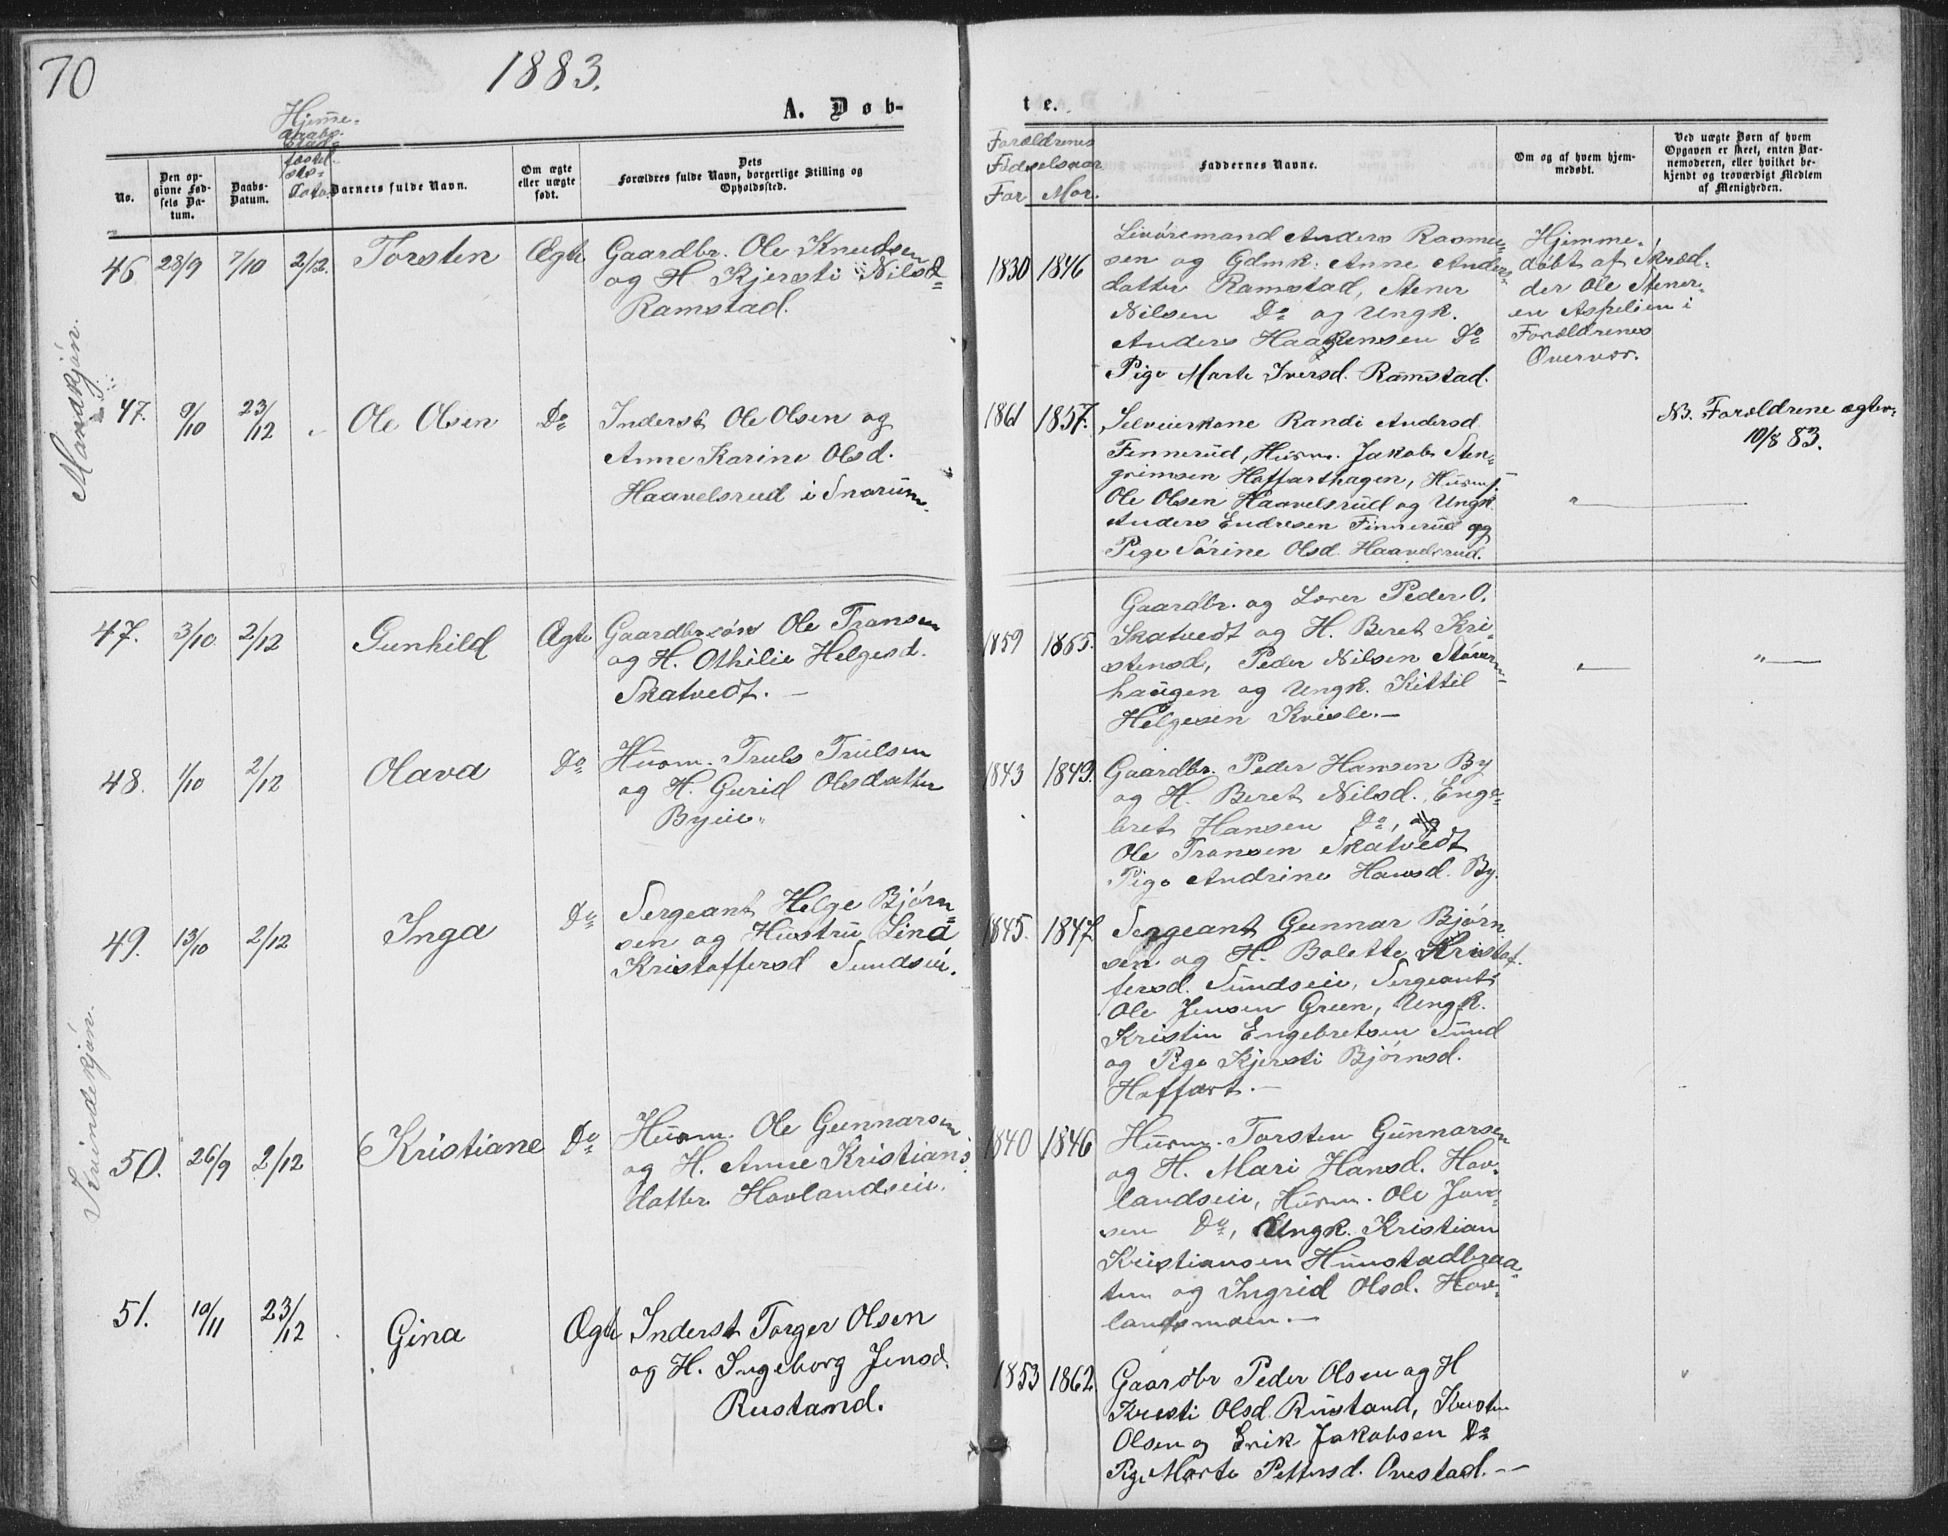 70
1883.
A. Døb-
te.
Hjemme-
daabs-
Stad-
fæstel-
ses-
Dato.
No.
Den op-
givne Fød-
sels Da-
tum.
Daabs-
Datum.
Barnets fulde Navn.
Om ægte
eller uægte
født.
Dets
Forældres fulde Navn, borgerlige Stilling og
Opholdssted.
Forældrenes
Fødselsaar
Far Mor.
Faddernes Navne.
Om og af hvem hjem-
medøbt.
Ved uægte Børn af hvem
Opgaven er skeet, enten Bar-
nemoderen, eller hvilket be-
kjendt og troværdigt Medlem
af Menigheden.
Mandkjøn.
46 28/9 7/10 2/12. Torsten Ægte
Gaardbr. Ole Knudsen
og H. Kjersti Nilsd
Ramstad.
1830 1846
Anders Rasmu-
sen og Gdmk. Anne Anders-
datter Ramstad, Stener
Nilsen Do og Ungk.
Anders Haagensen Do
Pige Marte Iversd. Ramstad.
Hjemme-
døbt af Skræd-
der Ole Stener-
en Aspelien i
Forældrenes
Overvær.
47. 9/10 23/12 „ Ole Olsen Do
Inderst Ole Olsen og
Anne Karine Olsd.
Haavelsrud i Snarum.
1861 1857.
Selveierkone Randi Andersd
Finnerud, Husm. Jakob Sten-
grimsen Hoffarthagen, Husm
Ole Olsen Haavelsrud og Ungk
Anders Endresen Finnerud og
Pige Sørine Olsd. Haavelsrud.
„ —
NB. Forældrene ægtev.
10/8 83.
Kvindekjøn.
47. 3/10 2/12 Gunhild Ægte
Gaardbrsøn Ole Transen
og H. Othilie Helgesd.
Skatvedt. —
1859 1865.
Gaardbr. og Lærer Peder O.
Skatvedt og H. Beret Kri-
stensd, Peder Nilsen Støver-
haugen og Ungk. Kittil
Helgesen Kvisle. —
„ — „ —
48. 1/10 2/12 Olava Do
Husm. Truls Trulsen
og H. Gurid Olsdatter
Byeie.
1843 1849.
Gaardbr. Peder Hansen By
og H. Beret Nilsd., Enge-
bret Hansen Do, og
Ole Transen Skatvedt
Pige Andrine Hansd. By.
49. 13/10 2/12 Inga Do
Sergeant Helge Bjørn-
sen og Hustru Lina
Kristoffersd Sundseie.
1845. 1847
Sergeant Gunnar Bjørn
sen og H. Bolette Kristof-
fersd. Sundseie, Sergeant
Ole Jensen Green, Ungk.
Kristin Engebretsen Sund
og Pige Kjersti Bjørnsd.
Hoffart. —
50. 26/9 2/12 Kristiane Do
Husm. Ole Gunnarsen
og H. Anne Kristians-
datter Hovlandseie.
1840 1846
Husm. Torsten Gunnarsen
og H. Mari Hansd. Hov-
landseie, Husm. Ole Jan-
sen Do, Ungk. Kristian
Kristiansen Hunstadbraa-
ten og Ingrid Olsd. Hov-
landsmoen. —
51. 10/11 23/12 Gina Ægte
Inderst Torger Olsen
og H. Ingeborg Jensd.
Rustand.
1853 1862.
Gaardbr Peder Olsen og H
Kristi Olsd. Rustand, Kristen
Olsen og Erik Jakobsen Do
Pige Marte Pettersd. Ovestad. —